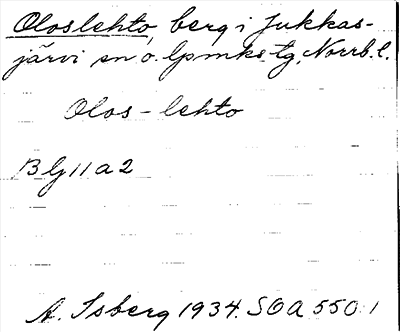 Oloslehto, berg i Jukkas-
järvi sn o. lpmks. tg, Norrb. l.
Olos-lehto
Bl j 11 a 2
A. Isberg 1934. SOA 550:1